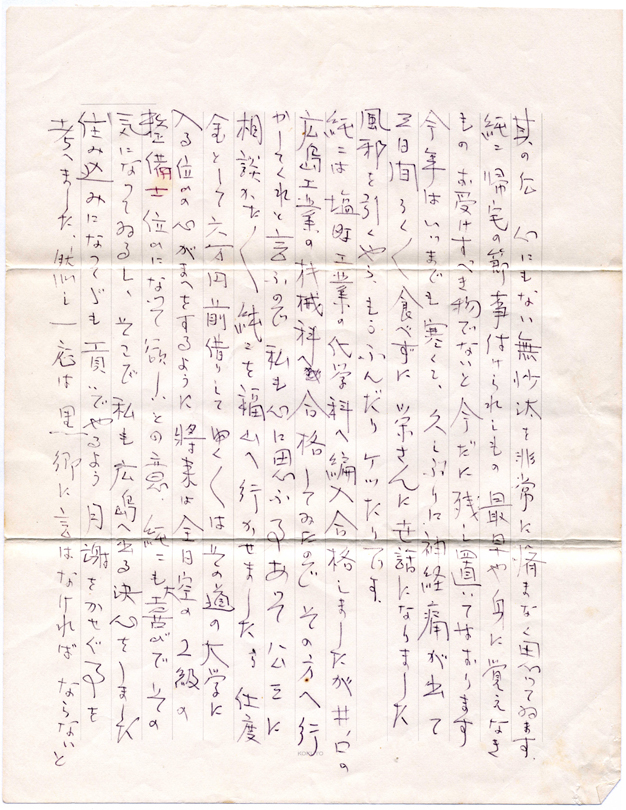 其の后 心にもない無沙汰を非常に済まなく思つてゐます
純二帰宅の節事付けられしもの 最早や身に覚えなき
もの お受けすべき物でないと今だに残し置いてはおります
今年はいつまでも寒くて、久しぶりに神経痛が出て
三日間ろく〱食べずに 栄さんに世話になりました
風邪を引くやら、もうふんだり ケッたりです、
純二は 塩町工業の化学科へ編入合格しましたが 井ノ口の
広島工業の機械科へ 合格してゐたので その方へ行
かしてくれと言ふので 私も心に思ふ事あつて 公三に
相談かた〲 純二を福山へ行かせましたら 仕度
金として六万円前借りして ゆく〱は その道の大学に
入る位の心がまへをするように 将来は全日空の2級の
整備士位になつて欲しいとの意、純二も大喜びで その
気になつてゐるし、そこで私も広島へ出る決心をしました
住み込みになつてでも 貢いでやるよう 月謝をかせぐ事を
考へました、然し 一応は 黒郷に言はなければ ならないと